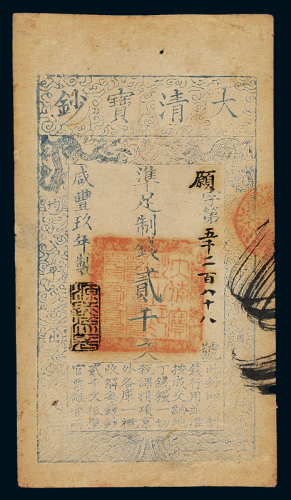 大清寶鈔
願字第五千二百八十八號
準足制錢貳千文
咸豐玖年製
均平出
此鈔即代制
錢行用並準
按成交納地
丁錢糧一切
稅課捐項京
外各庫一概
收解每錢鈔
貳千文抵換
官票銀壹兩